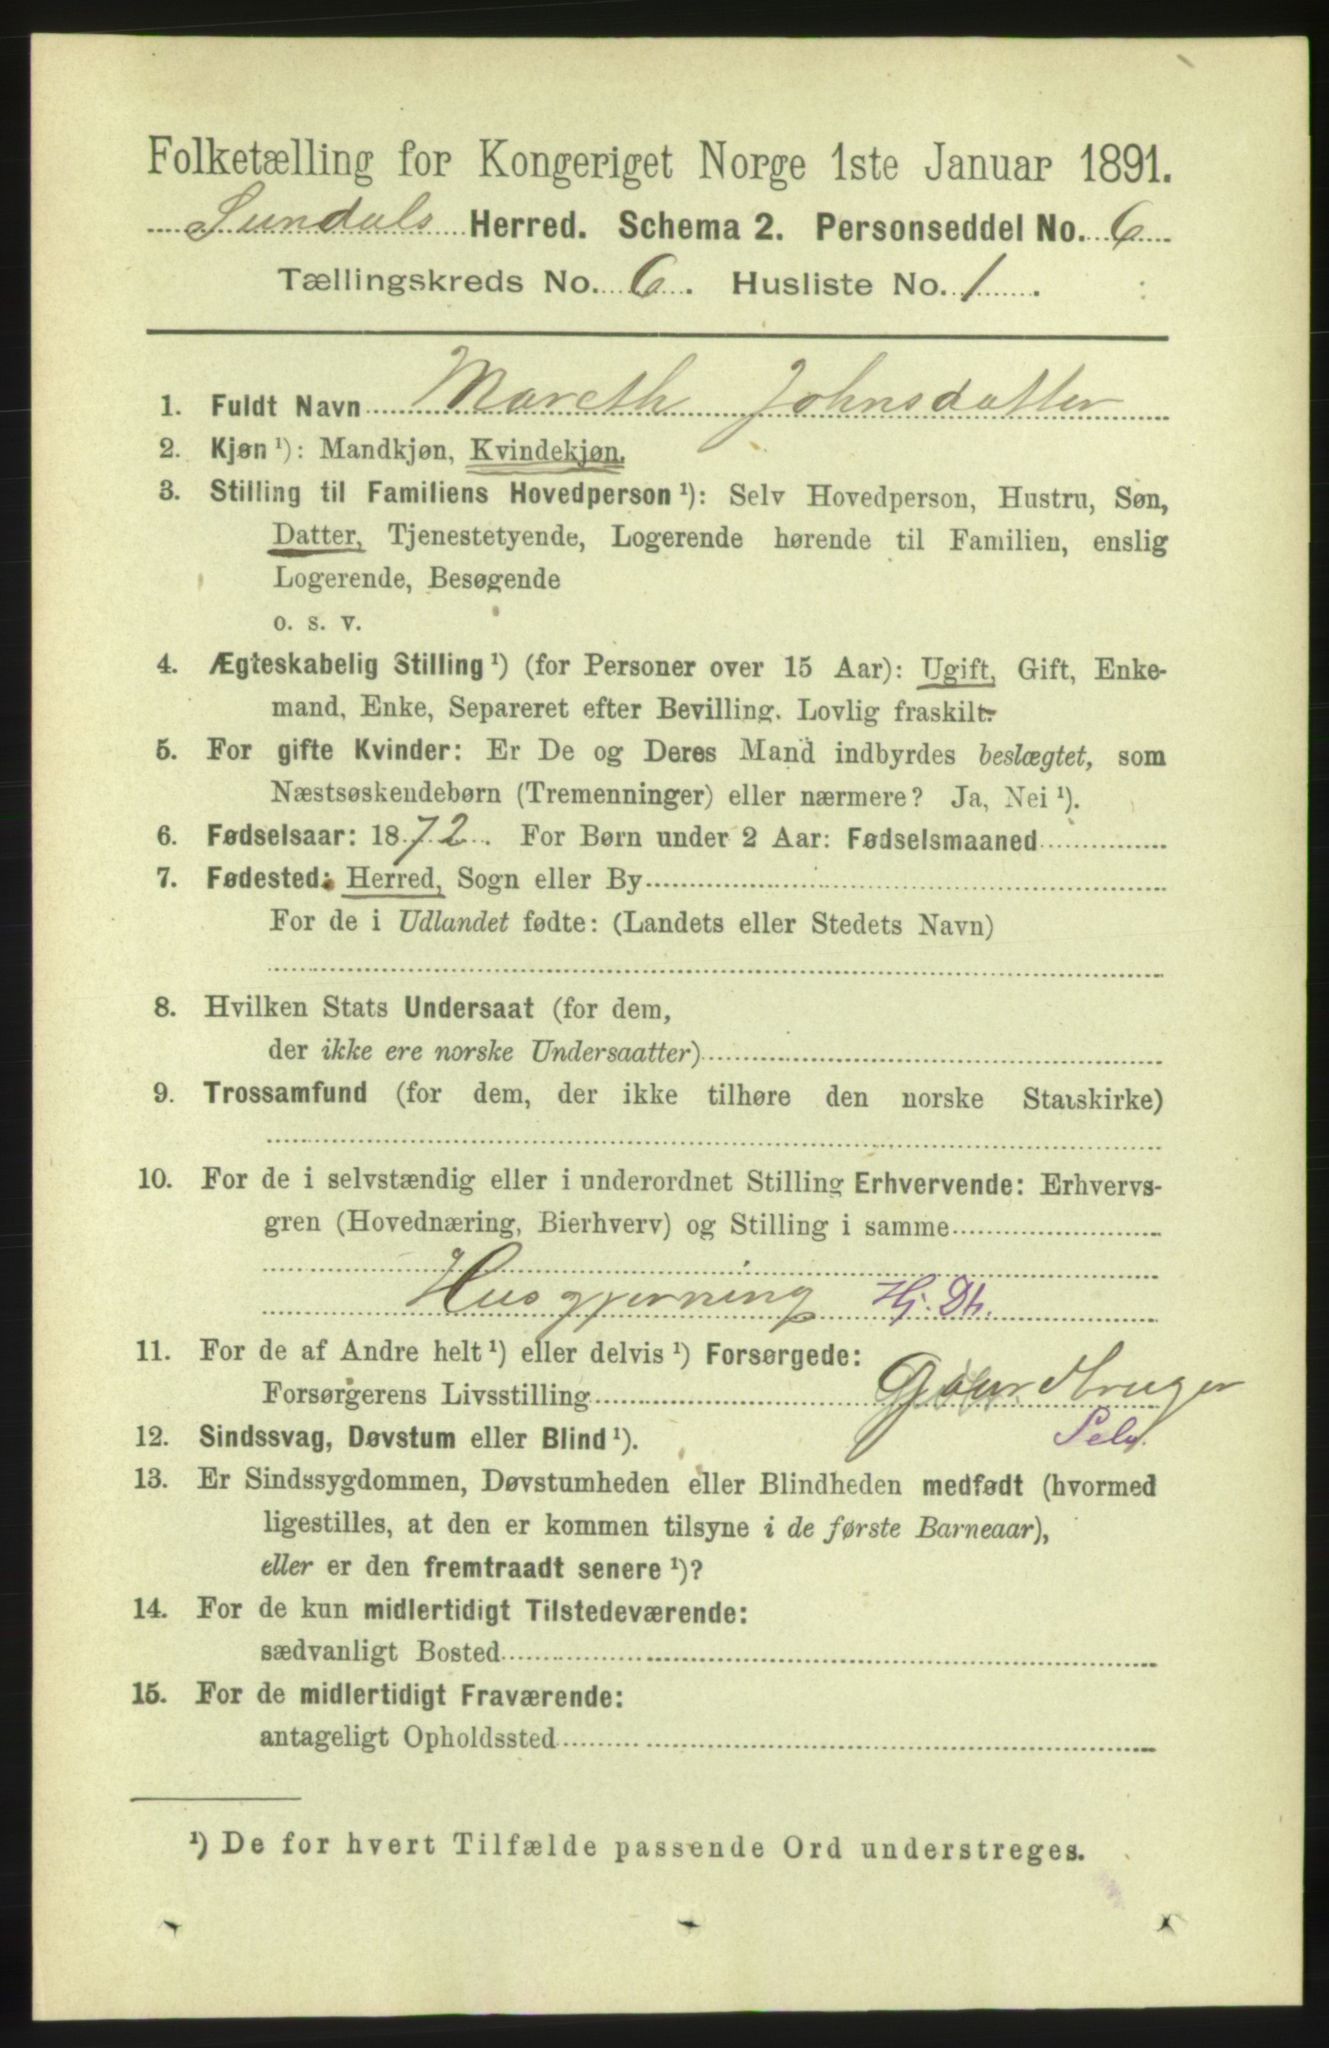 Folketælling for Kongeriget Norge 1ste Januar 1891.
Sundals Herred. Schema 2. Personseddel No. 6
Tællingskreds No. 6. Husliste No. 1.
1. Fuldt Navn Mareth Johnsdatter
2. Kjøn ¹): Mandkjøn, Kvindekjøn.
3. Stilling til Familiens Hovedperson ¹): Selv Hovedperson, Hustru, Søn,
Datter, Tjenestetyende, Logerende hørende til Familien, enslig
Logerende, Besøgende
o. s. v.
4. Ægteskabelig Stilling ¹) (for Personer over 15 Aar): Ugift, Gift, Enke-
mand, Enke, Separeret efter Bevilling. Lovlig fraskilt.
5. For gifte Kvinder: Er De og Deres Mand indbyrdes beslægtet, som
Næstsøskendebørn (Tremenninger) eller nærmere? Ja, Nei ¹).
6. Fødselsaar: 1872. For Børn under 2 Aar: Fødselsmaaned
7. Fødested: Herred, Sogn eller By
For de i Udlandet fødte: (Landets eller Stedets Navn)
8. Hvilken Stats Undersaat (for dem,
der ikke ere norske Undersaatter)
9. Trossamfund (for dem, der ikke tilhøre den norske Statskirke)
10. For de i selvstændig eller i underordnet Stilling Erhvervende: Erhvervs-
gren (Hovednæring, Bierhverv) og Stilling i samme
Husgjerning Hj. Dt.
11. For de af Andre helt ¹) eller delvis ¹) Forsørgede:
Forsørgerens Livsstilling Gaardbruger
Selv.
12. Sindssvag, Døvstum eller Blind ¹).
13. Er Sindssygdommen, Døvstumheden eller Blindheden medfødt (hvormed
ligestilles, at den er kommen tilsyne i de første Barneaar),
eller er den fremtraadt senere ¹)?
14. For de kun midlertidigt Tilstedeværende:
sædvanligt Bosted
15. For de midlertidigt Fraværende:
antageligt Opholdssted
¹) De for hvert Tilfælde passende Ord understreges.